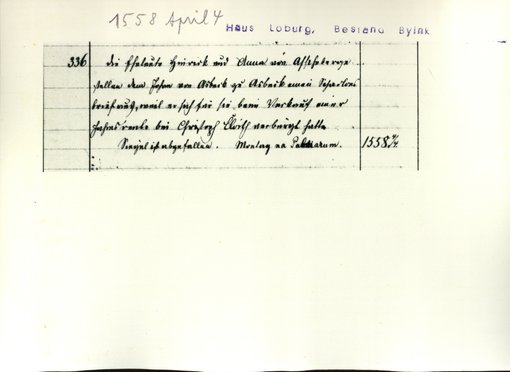 1558 April 4
Haus Loburg, Bestand Byink
336 Die Eheleute Hinrick und Anna von
stellen dem Johan von Asbeck zu Asbeck einen
brief aus, weil er sich für sie beim Verkauf einer
Jahresrente bei Christoph verbürgt hatte
Siegel ist abgefallen. Montag na Palmarum. 1558 4/4